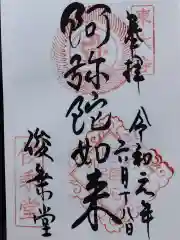 奉拝
令和元年
六月十八日
阿弥陀如来
俊乗堂